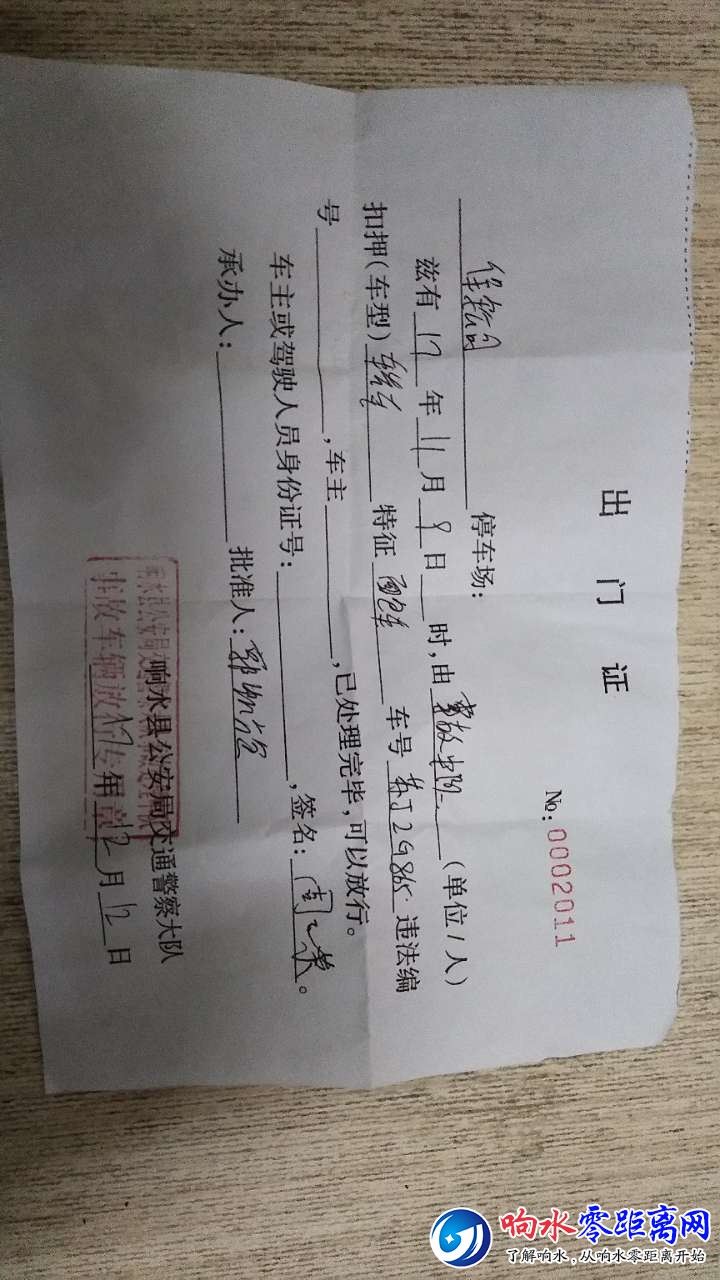 出门证
No: 0002011
停车场:
兹有 17 年 11 月 9 日 时,由 事故中队 (单位/人)
扣押(车型) 特征 面包车 车号 苏J29865 违法编
号 ,车主 ,已处理完毕,可以放行。
车主或驾驶人员身份证号: ,签名:
承办人: 批准人:
响水县公安局交通警察大队
事故车辆放行专用章
17 年 12 月 12 日
响水零距离网
了解响水,从响水零距离开始